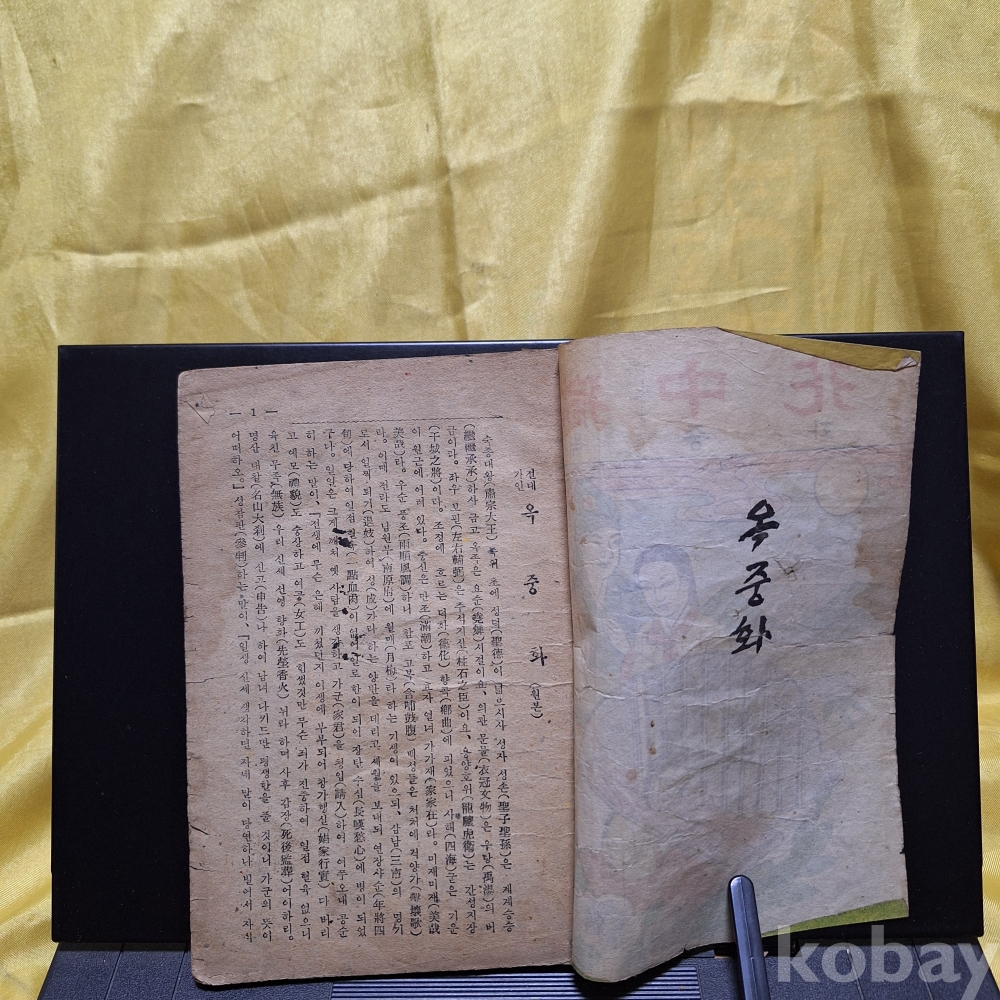 옥중화
절대
가인 옥 중 화 (원본)
숙종대왕(肅宗大王) 즉위 초에 성덕(聖德)이 넓으시사 성자 성손(聖子聖孫)은 계계승승
(繼繼承承)하사 금고 옥족은 요순(堯舜)시절이요, 의관 문물(衣冠文物)은 우탕(禹湯)의 버
금이라. 좌우 보필(左右輔弼)은 주석지신(柱石之臣)이요, 용양호위(龍驤虎衛)는 간성지장
(干城之將)이라. 조정에 흐르는 덕화(德化) 향곡(鄕曲)에 피었으니 사해(四海) 굳은 기운
이 원근에 어려 있다. 충신은 만조(滿潮)하고 효자 열녀 가가재(家家在)라. 미재미재(美哉
美哉)라. 우순 풍조(雨順風調)하니 함포 고복(含哺鼓腹) 백성들은 처처에 격양가(擊壤歌)
라. 이때 전라도 남원부(南原府)에 월매(月梅)라 하는 기생이 있으되, 삼남(三南)의 명기
로서 일찍 퇴기(退妓)하여 성(成)가라 하는 양반을 데리고 세월을 보내되 연장사순(年將四
旬)에 당하여 일점 혈육(一點血肉)이 없어 일로 한이 되어 장탄 수심(長嘆愁心)에 병이 되었
구나. 일일은 크게 깨쳐 옛 사람을 생각하고 가군(家君)을 청입(請入)하여 여쭈오대 공순
히 하는 말이, 『전생에 무슨 은혜 끼쳤던지 이생에 부부되어 창가행실(娼家行實) 다 버리
고 예모(禮貌)도 숭상하고 여공(女工)도 힘썼것만 무슨 죄가 진중하여 일점 혈육 없으니
육친 무족(無族) 우리 신세 선영 향화(先塋香火) 뉘라 하며 사후 감장(死後監葬)어이하리.
명산 대찰(名山大刹)에 신고(申告)나 하여 남녀 나키드만 평생한을 풀 것이니 가군의 뜻이
어떠하오.』 성참판(參判)하는 말이, 『일생 신세 생각하면 자네 말이 당연하나 빌어서 자식
— 1 —
kobay